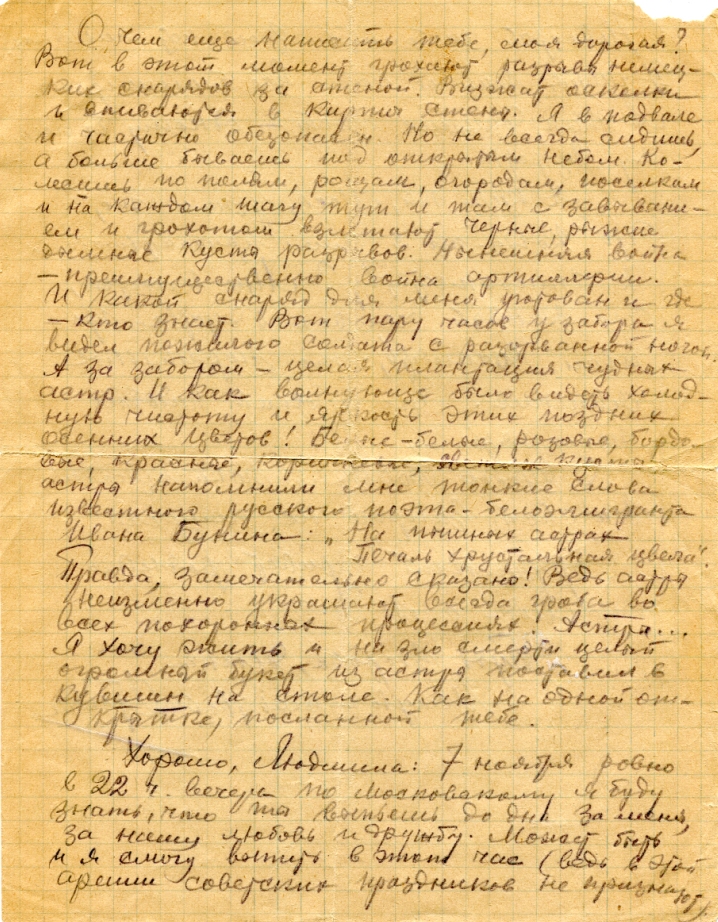 О чем еще написать тебе, моя дорогая?
Вот в этот момент грохают разрывы немец-
ких снарядов за стеной. Визжат осколки
и впиваются в кирпич стены. Я в подвале
и частично обезопасен. Но не всегда сидишь,
а больше бываешь под открытым небом. Ко-
лесишь по полям, рощам, огородам, поселкам
и на каждом шагу тут и там с завывани-
ем и грохотом взлетают черные, рыжие
дымные кусты разрывов. Нынешняя война
– преимущественно война артиллерии.
И какой снаряд для меня уготован и где
– кто знает. Вот пару часов у забора я
видел пожилого солдата с разорванной ногой.
А за забором – целая плантация чудных
астр. И как волнующе было видеть холод-
ную чистоту и яркость этих поздних
осенних цветов! Белые-белые, розовые, бордо-
вые, красные, коричневые,
астры напомнили мне тонкие слова
известного русского поэта-белоэмигранта
Ивана Бунина: „На пышных астрах
Печаль хрустальная цвела".
Правда, замечательно сказано! Ведь астры
неизменно украшают всегда гроба во
всех похоронных процессиях. Астры...
Я хочу жить и на зло смерти целый
огромный букет из астр поставил в
кувшин на столе. Как на одной от-
крытке, посланной тебе.
Хорошо, Людмила: 7 ноября ровно
в 22 ч. вечера по Московскому я буду
знать, что ты выпьешь до дна за меня,
за нашу любовь и дружбу. Может быть
и я смогу выпить в этот час (ведь в этой
армии советских праздников не признают)